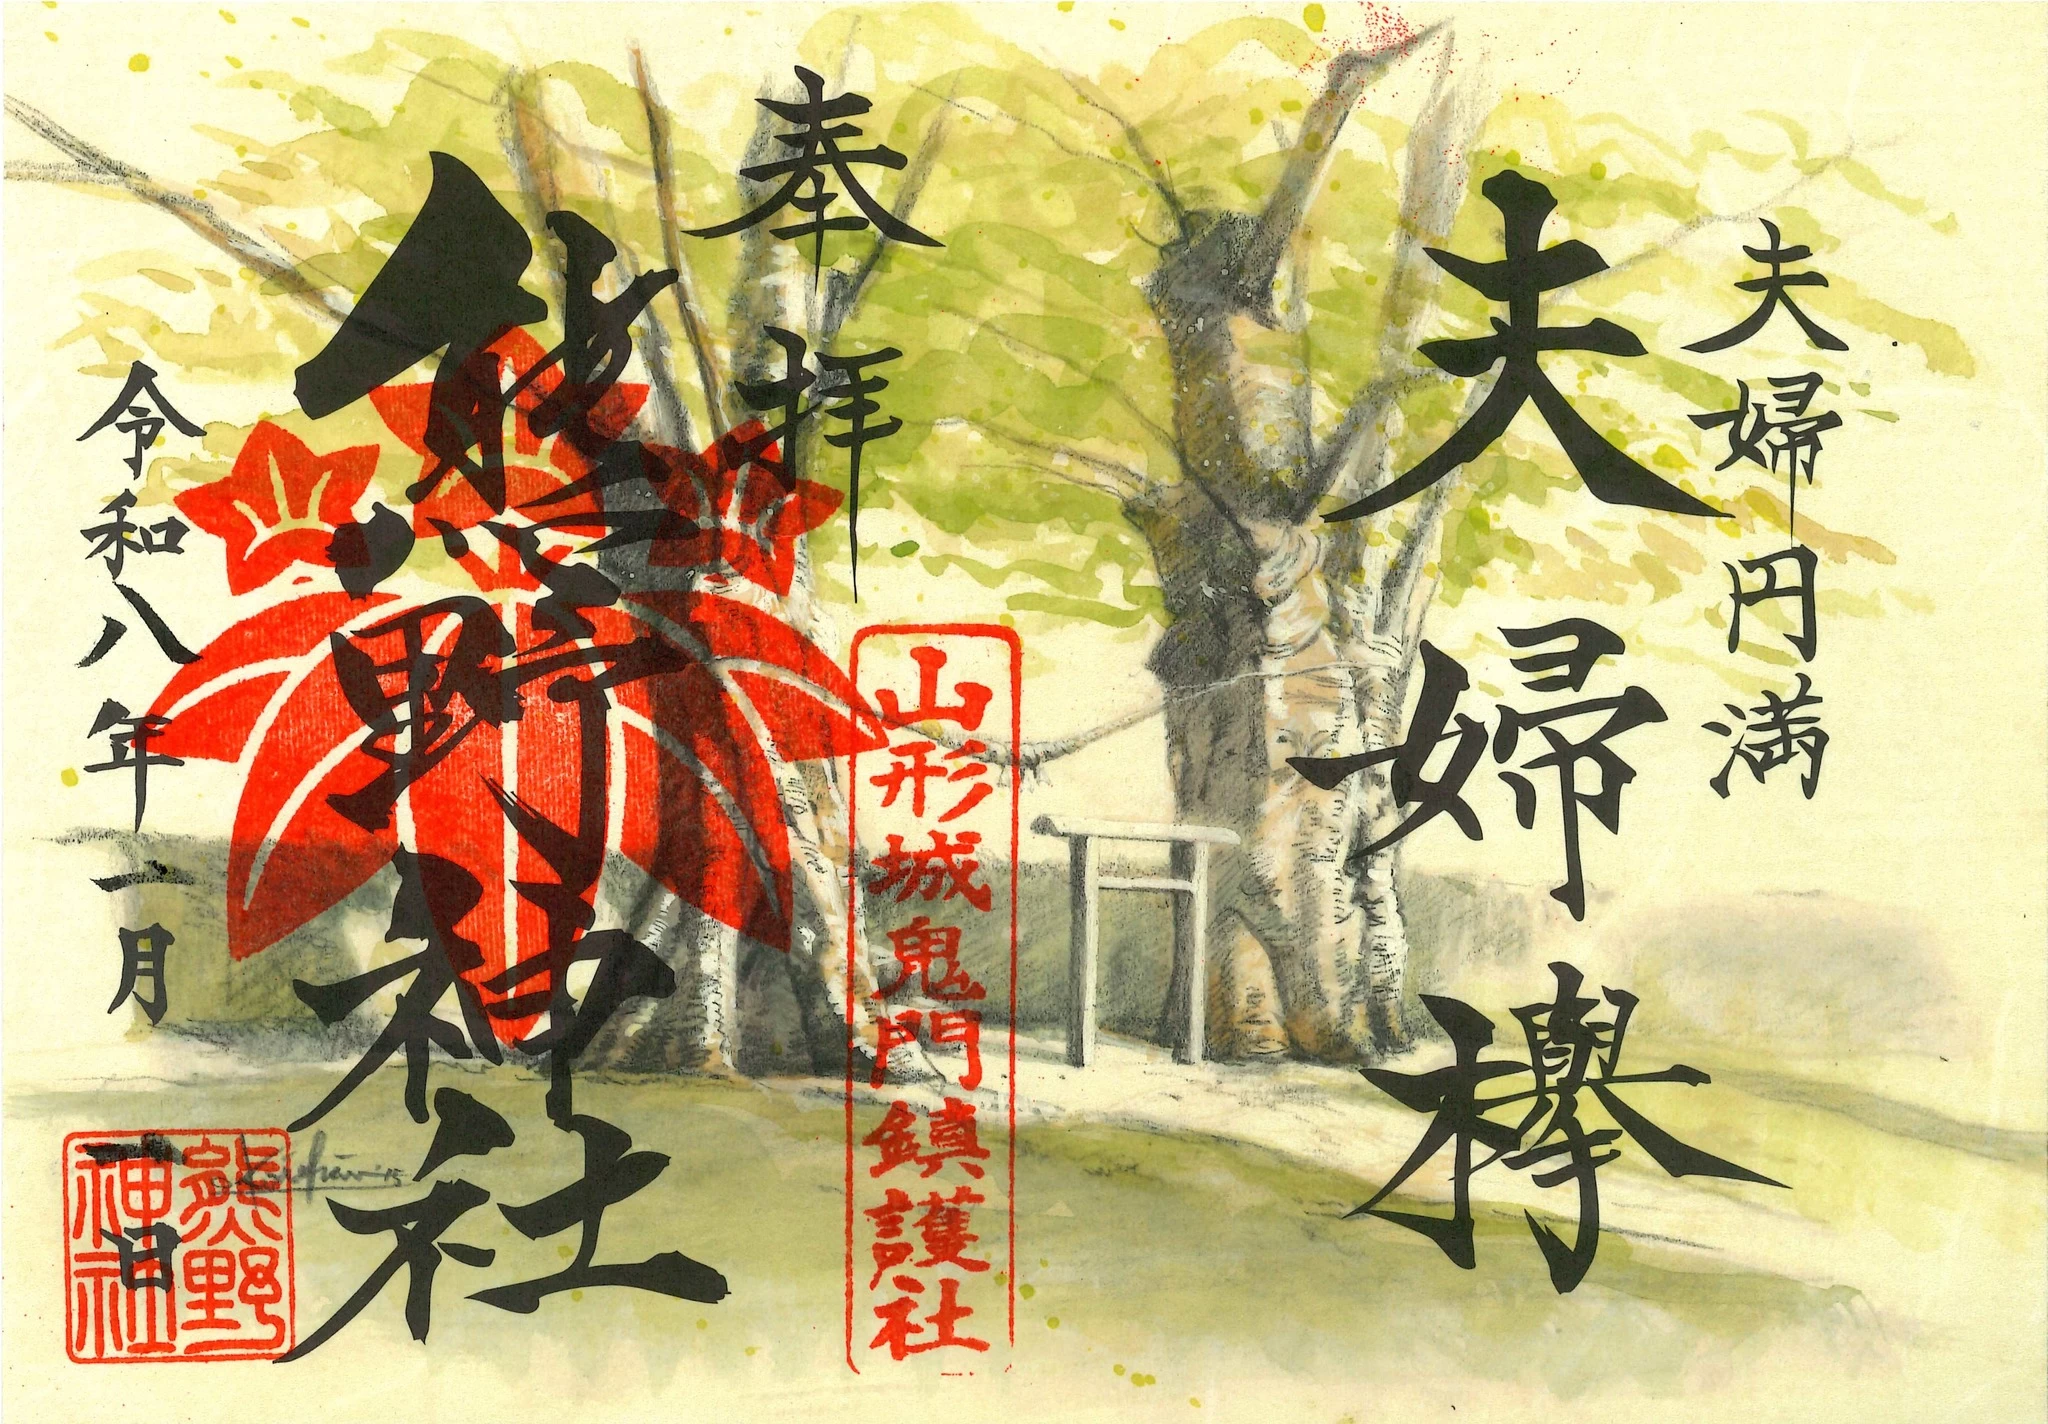 夫婦円満
夫婦欅
奉拝
山形城鬼門鎮護社
熊野神社
令和八年一月一日
熊野
神社